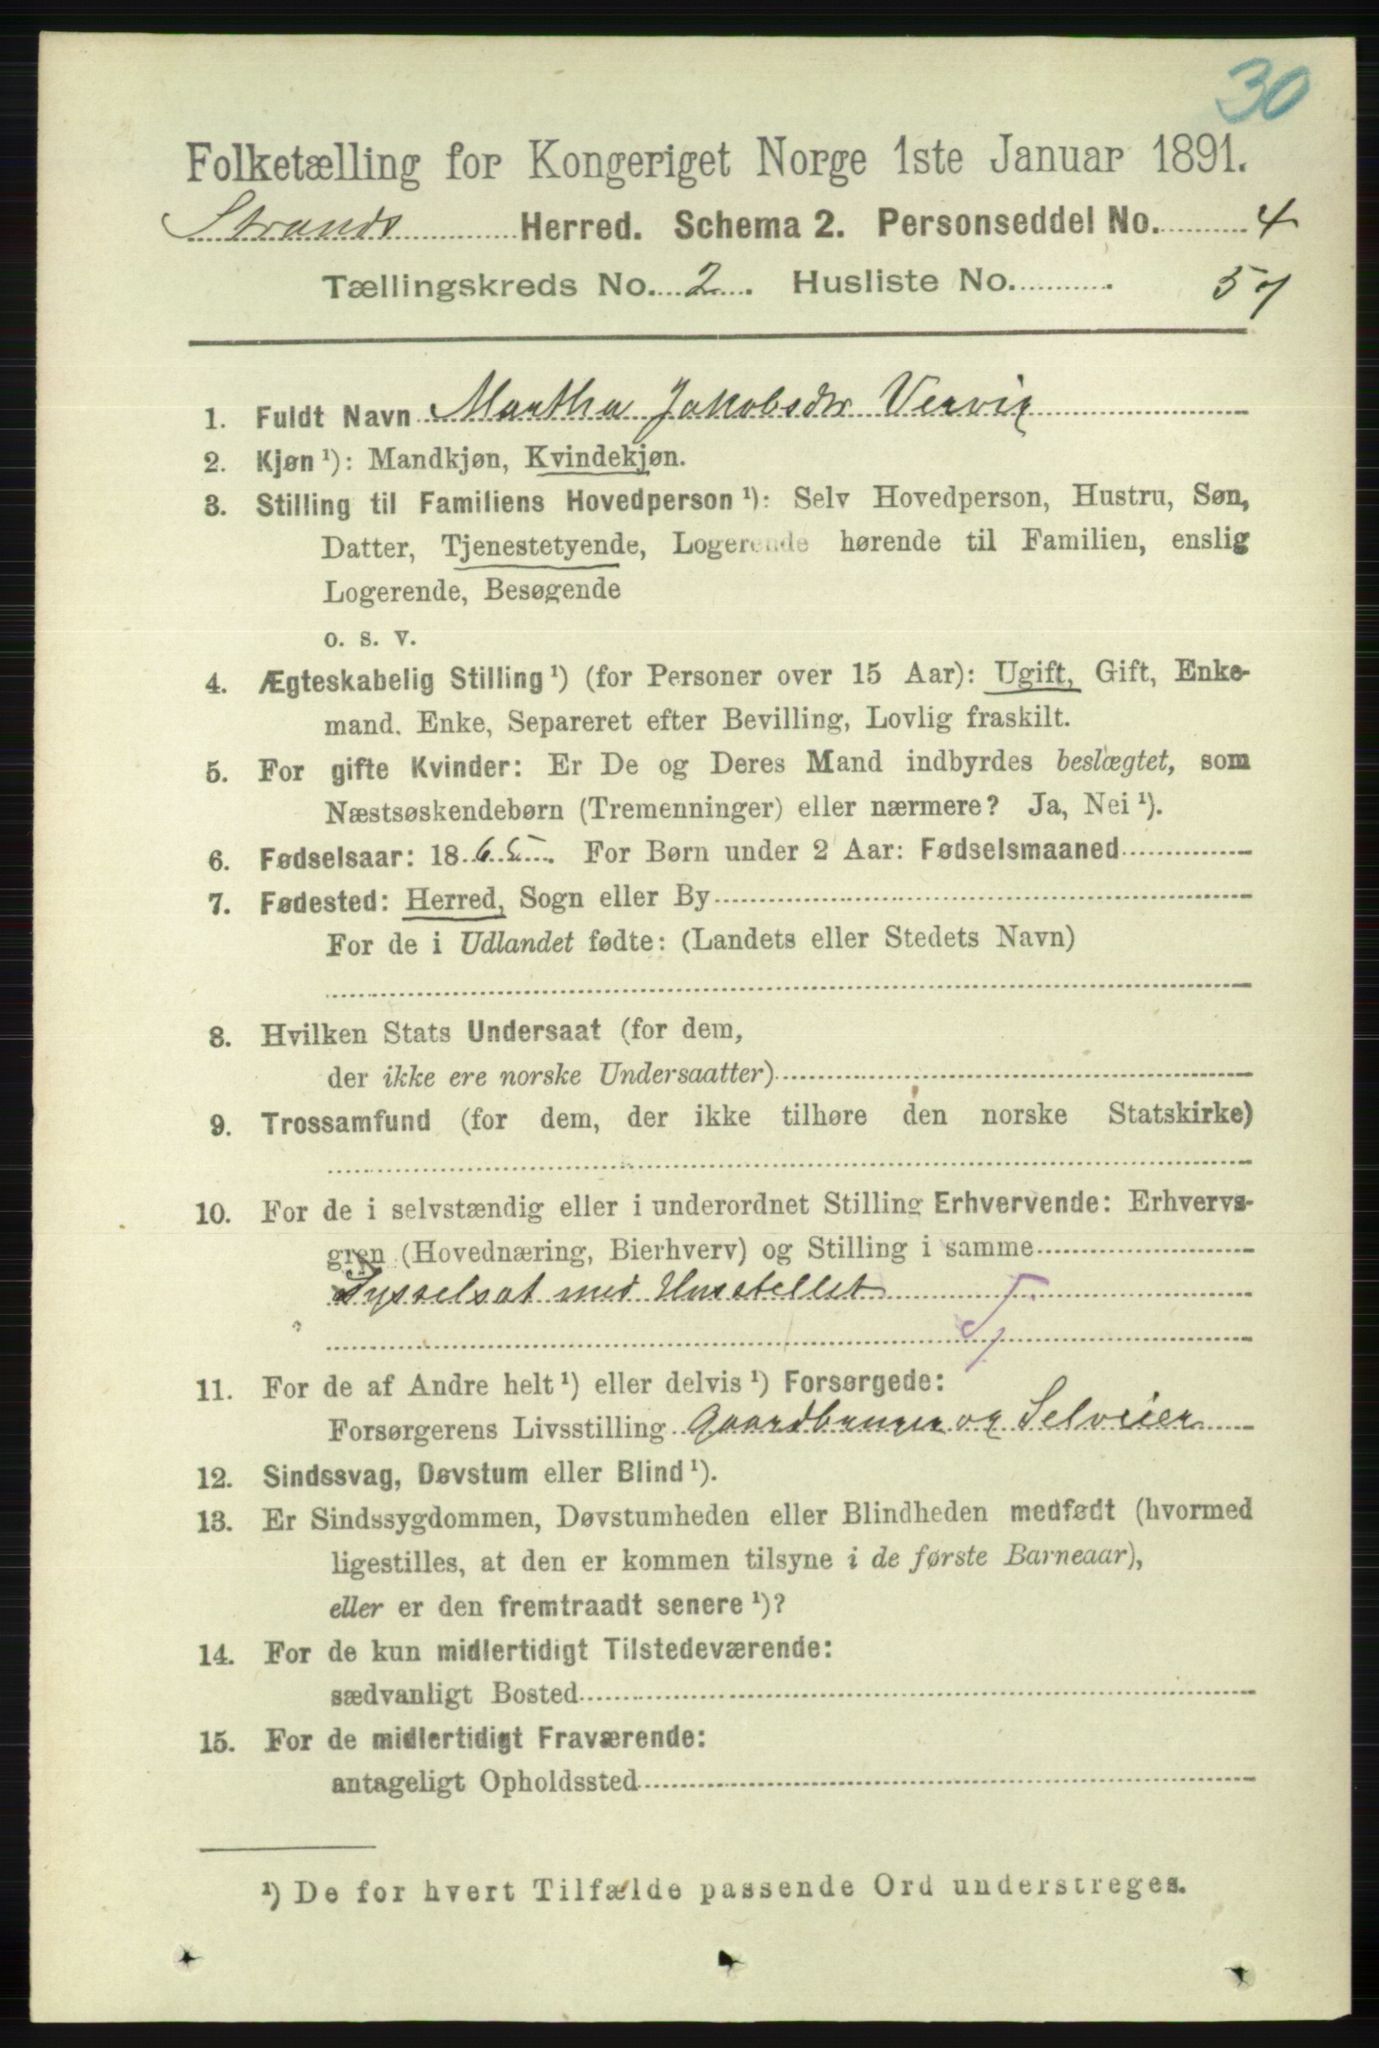 30
Folketælling for Kongeriget Norge 1ste Januar 1891.
Strands Herred. Schema 2. Personseddel No. 4
Tællingskreds No. 2. Husliste No. 57
1. Fuldt Navn Martha Jakobsdtr Vervig
2. Kjøn ¹): Mandkjøn, Kvindekjøn.
3. Stilling til Familiens Hovedperson ¹): Selv Hovedperson, Hustru, Søn,
Datter, Tjenestetyende, Logerende hørende til Familien, enslig
Logerende, Besøgende
o. s. v.
4. Ægteskabelig Stilling ¹) (for Personer over 15 Aar): Ugift, Gift, Enke-
mand. Enke, Separeret efter Bevilling, Lovlig fraskilt.
5. For gifte Kvinder: Er De og Deres Mand indbyrdes beslægtet, som
Næstsøskendebørn (Tremenninger) eller nærmere? Ja, Nei ¹).
6. Fødselsaar: 1865. For Børn under 2 Aar: Fødselsmaaned
7. Fødested: Herred, Sogn eller By
For de i Udlandet fødte: (Landets eller Stedets Navn)
8. Hvilken Stats Undersaat (for dem,
der ikke ere norske Undersaatter)
9. Trossamfund (for dem, der ikke tilhøre den norske Statskirke)
10. For de i selvstændig eller i underordnet Stilling Erhvervende: Erhvervs-
gren (Hovednæring, Bierhverv) og Stilling i samme
Sysselsat med Husstellet T.
11. For de af Andre helt ¹) eller delvis ¹) Forsørgede:
Forsørgerens Livsstilling Gaardbruger og Selveier
12. Sindssvag, Døvstum eller Blind ¹).
13. Er Sindssygdommen, Døvstumheden eller Blindheden medfødt (hvormed
ligestilles, at den er kommen tilsyne i de første Barneaar),
eller er den fremtraadt senere ¹)?
14. For de kun midlertidigt Tilstedeværende:
sædvanligt Bosted
15. For de midlertidigt Fraværende:
antageligt Opholdssted
¹) De for hvert Tilfælde passende Ord understreges.